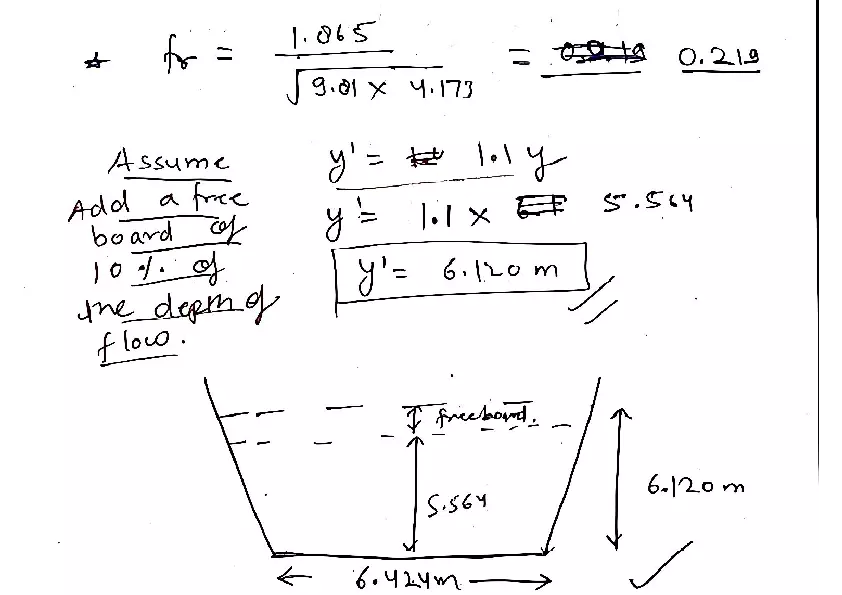 ☆ fr = 1.065 / √9.81 × 4.173 = 0.219
Assume
Add a free
board of
10 %. of
the depth of
flow.
y' = 1.1 y
y' = 1.1 × 5.564
y' = 6.120 m
freeboard.
5.564
6.120 m
6.424m